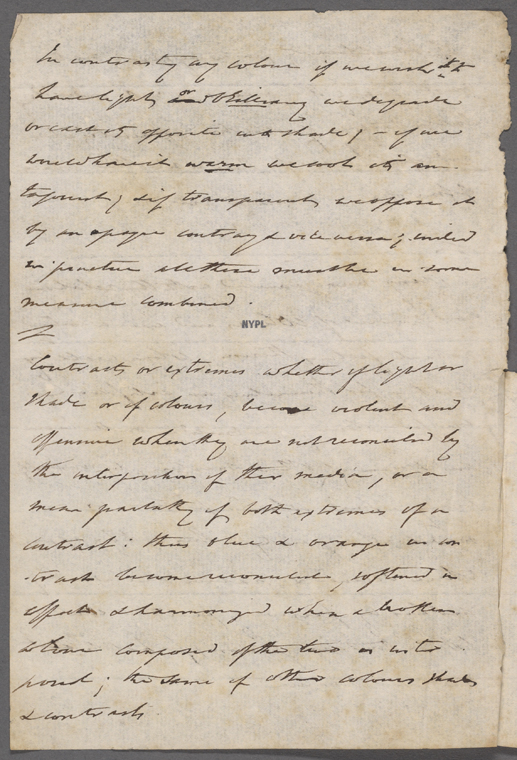 In contrasting any colour if we wish it to
have light or brilliancy we degrade
or cast its opposite into shade; – if we
would have it warm we cool its an-
tagonist; & if transparent, we oppose it
by an opaque contrary & vice versa; indeed
in practice all these must be in some
measure combined.
Contrasts or extremes whether of light or
shade or of colours, become violent and
offensive when they are not reconciled by
the interposition of their media, or a
mean partaking of both extremes of a
contrast: thus blue & orange in con
-trast become reconciled, softened in
effect & harmonized when a broken
colour composed of the two is inter
posed; the same of other colours shades
& contrasts.
NYPL